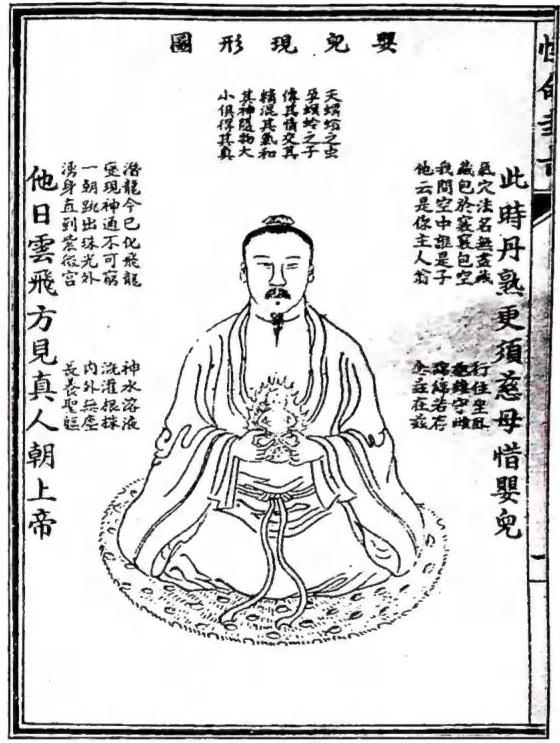 嬰兒現形圖
此時丹熟更須慈母惜嬰兒
氣穴法名無盡藏
藏包於竅竅包空
我問空中誰是子
他云是你主人翁
行住坐臥
抱雄守雌
綿綿若存
念茲在茲
之虫
孕螟蛉之子
傳其情交其
精混其氣和
其神隨物大
小俱得其真
潛龍今已化飛龍
變現神通不可窮
一朝跳出珠光外
湧身直到紫微宮
神水溶液
澆灌根株
內外無塵
長養聖軀
他日雲飛方見真人朝上帝